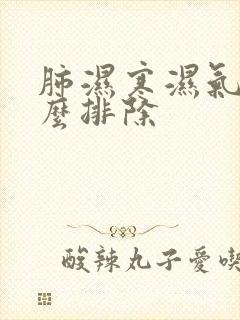 肺濕寒濕氣
麼排除
酸辣丸子愛喫